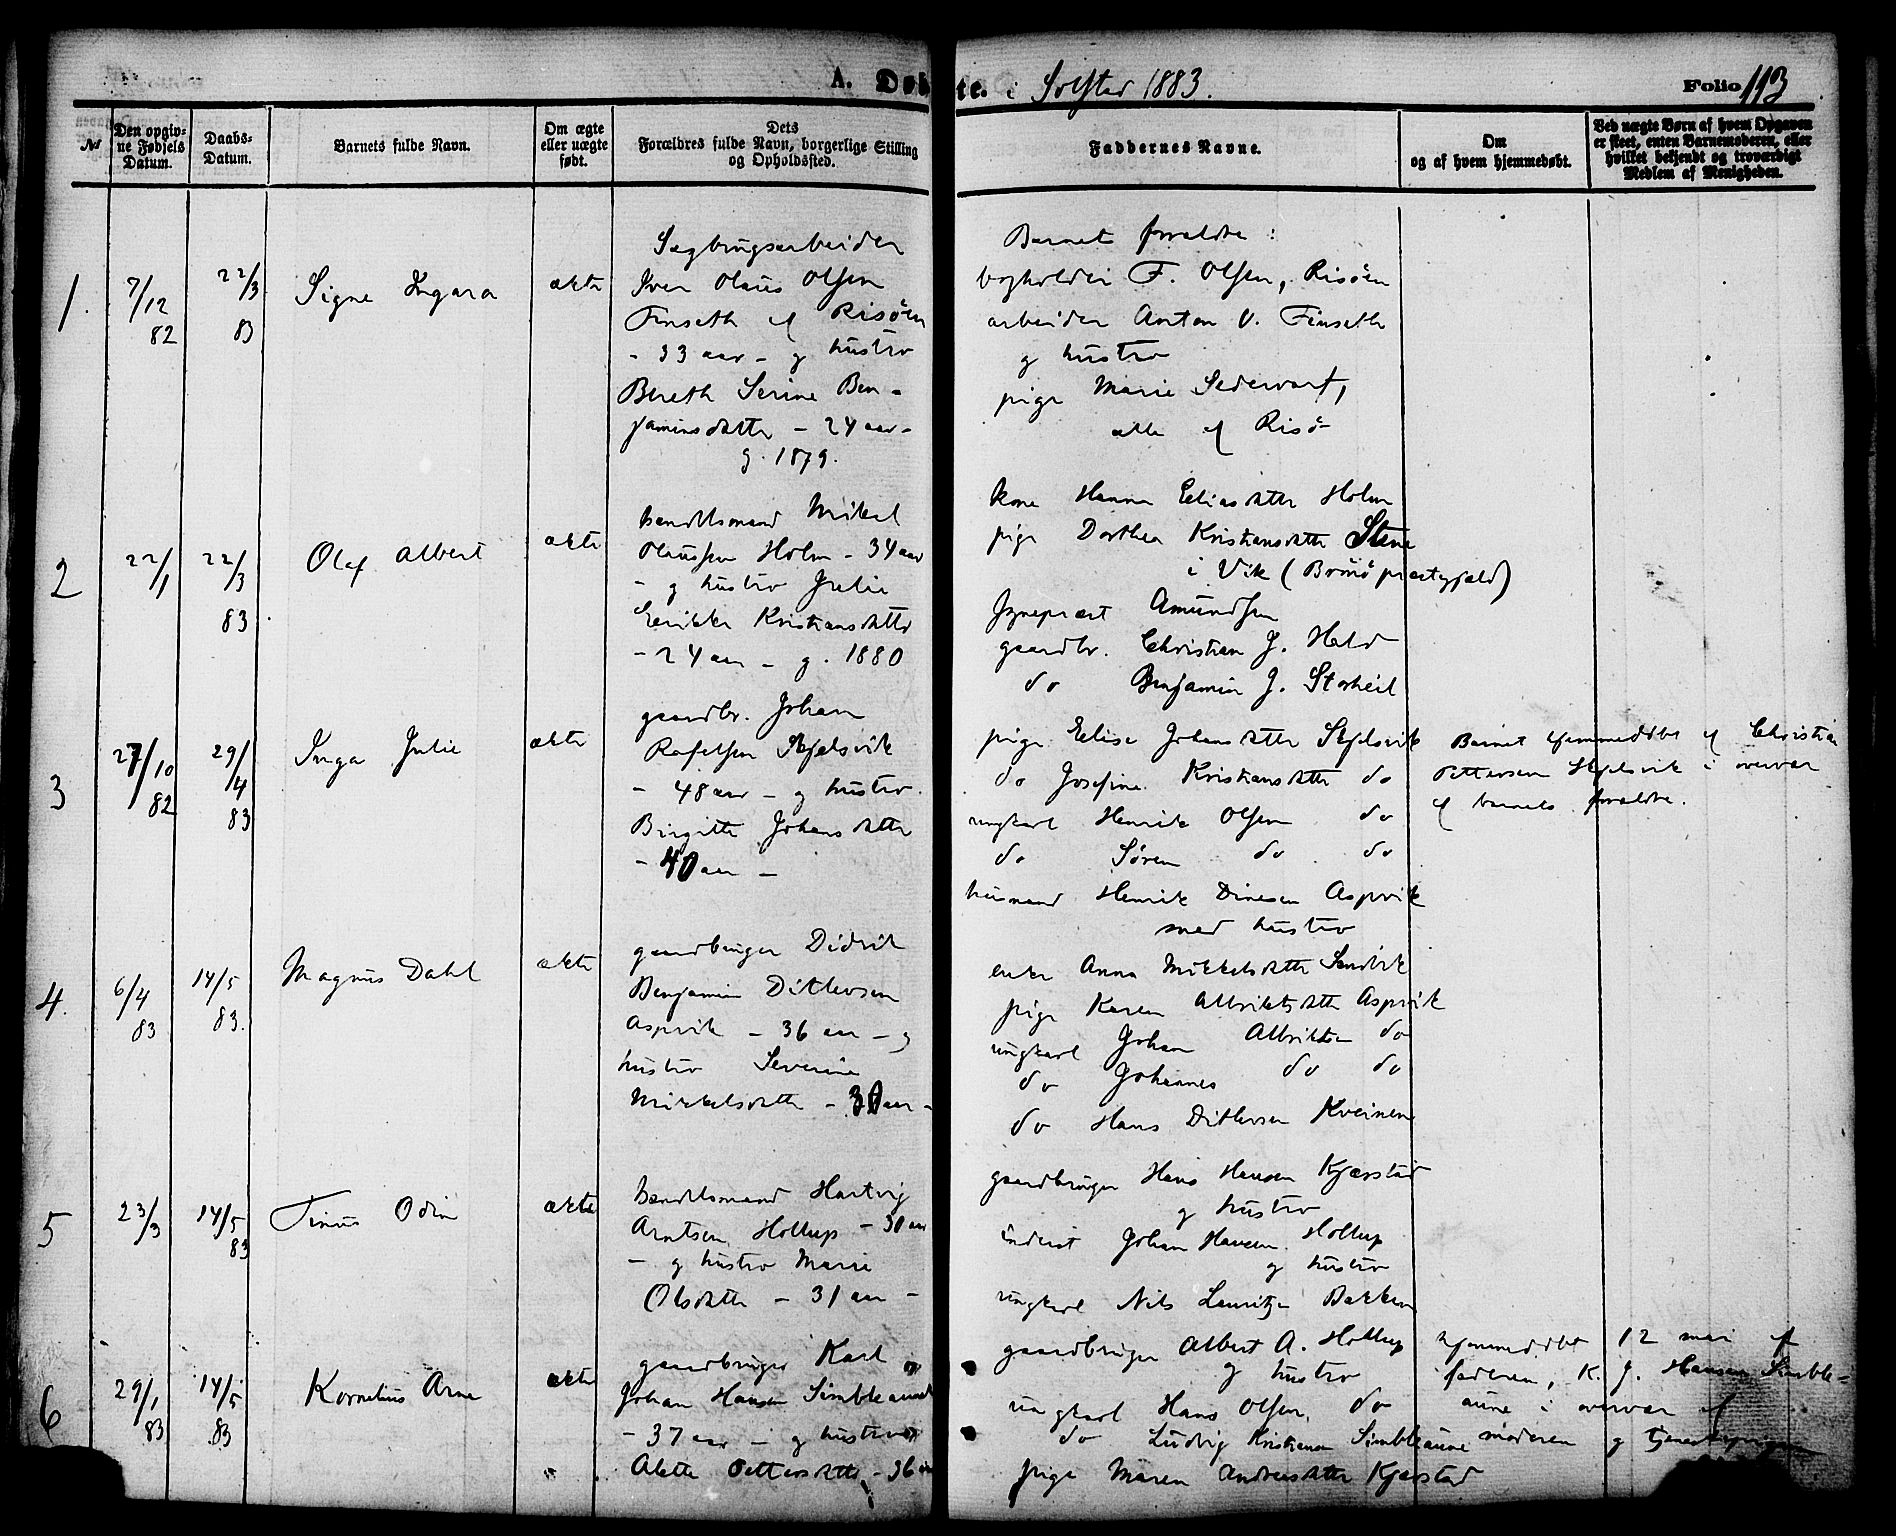 A. Døbte. i Solstad 1883. Folio 113
№
Den opgivne Fødsels Datum.
Daabs-Datum.
Barnets fulde Navn.
Om ægte eller uægte født.
Dets Forældres fulde Navn, borgerlige Stilling og Opholdssted.
Faddernes Navne.
Om og af hvem hjemmedøbt.
Ved uægte Børn af hvem Opgaven er skeet, enten Barnemoderen, eller hvilket bekjendt og troværdigt Medlem af Menigheden.
1.
7/12 82
22/3 83
Signe Ingara
ækte
Sagbrugsarbeider
Iver Olaus Olsen
Finseth af Risöen
- 33 aar - og hustro
Bereth Serine Ben-
jaminsdatter - 24 aar -
g. 1879.
Barnets forældre :
bogholder F. Olsen, Risöen
arbeider Anton O. Finseth
og hustro
pige Marie
alle af Risö
2
22/1
22/3 83
Olaf Albert
ækte
handelsmand Mikal
Olaussen Holm - 34 aar
- og hustro Julie
Kristiansdatter
- 24 aar - g. 1880
kone Hanna Eliasdatter Holm
pige Dorthea Kristiansdatter Stene
i Vik (Brönö præstegjæld)
sogneprest Amundsen
gaardbr. Christian J. Hald
do Benjamin J. Storheil
3
27/10 82
29/4 83
Inga Julie
ækte
gaardbr. Johan
Rafelsen Skjelsvik
- 48 aar - og hustro
Birgitte Johansdatter
- 40 aar -
pige Elise Johansdatter Skjelsvik
do Josefine Kristiansdatter do
ungkarl Henrik Olsen do
do Sören do do
husmand Henrik Dinesen Aspvik
med hustro
Barnet hjemmedöbt af Christian
Pettersen Skjelsvik i overvær
af barnets forældre.
4.
6/4 83
14/5 83.
Magnus Dahl
ækte
gaardbruger Didrik
Benjamin Ditlevsen
Aspvik - 36 aar - og
hustro Severine
Mikkelsdatter - 30 aar -
enke Anna Mikkelsdatter Sandvik
pige Karen Albriktsdatter Aspvik
ungkarl Johan Albriktsen do
do Johannes do do
do Hans Ditlevsen Kveinen
5
23/3
14/5 83
Tinus Odin
ækte
handelsmand Hartvig
Arntsen Hollup - 30 aar
- og hustro Marie
Olsdatter - 31 aar -
gaardbruger Hans Hansen Kjærstad
og hustro
inderst Johan Hansen Hollup
og hustro
ungkarl Nils Bakken
6
29/1 83
14/5 83
Kornelius Arne
ækte
gaardbruger Karl
Johan Hansen Simbleaune
- 37 aar - og hustro
Alette Pettersdatter - 36 aar
gaardbruger Albert A. Hollup
og hustro
ungkarl Hans Olsen do
do Ludvig Kristiansen Simbleaune
pige Maren Andreasdatter Kjærstad
hjemmedöbt 12 mai af
faderen, K. J. Hansen Simble-
aune i overvær af
moderen og tjenestepigen